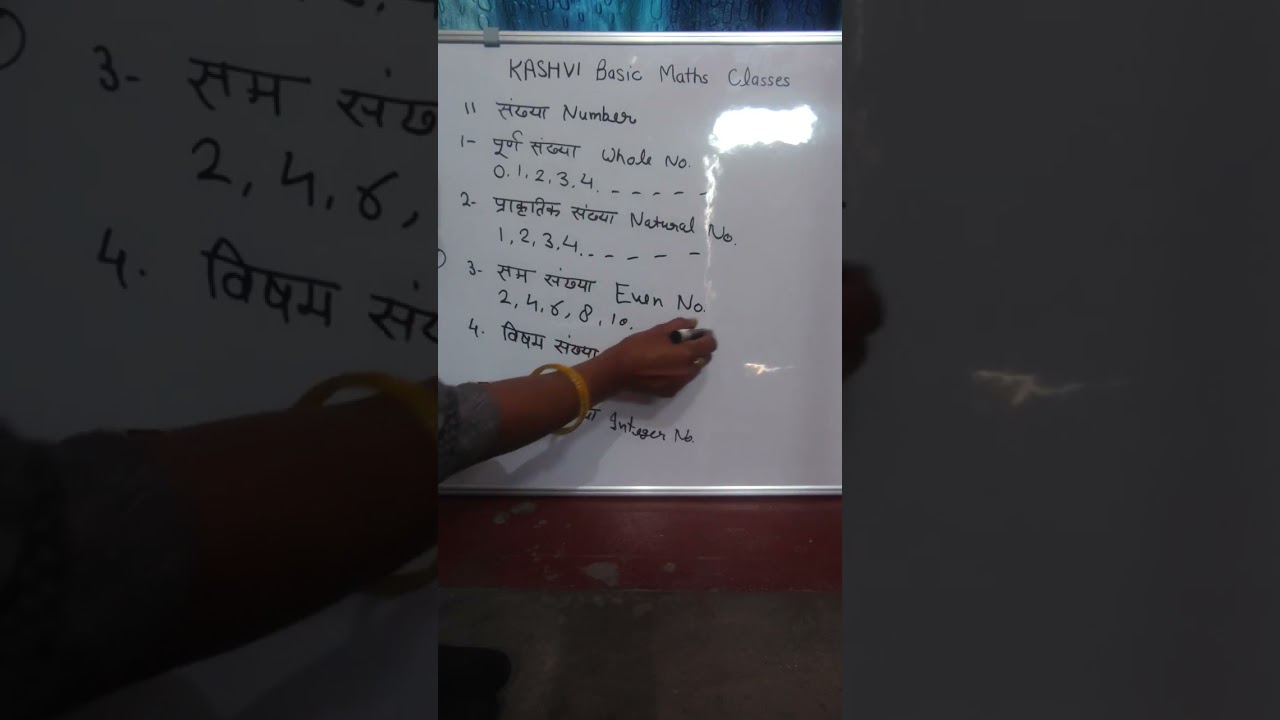 KASHVI Basic Maths Classes
11 संख्या Number
1- पूर्ण संख्या Whole No.
0,1,2,3,4. - - - - -
2- प्राकृतिक संख्या Natural No.
1,2,3,4. - - - - -
3- सम संख्या Even No.
2,4,6,8,10.
4. विषम संख्या
Integer No.